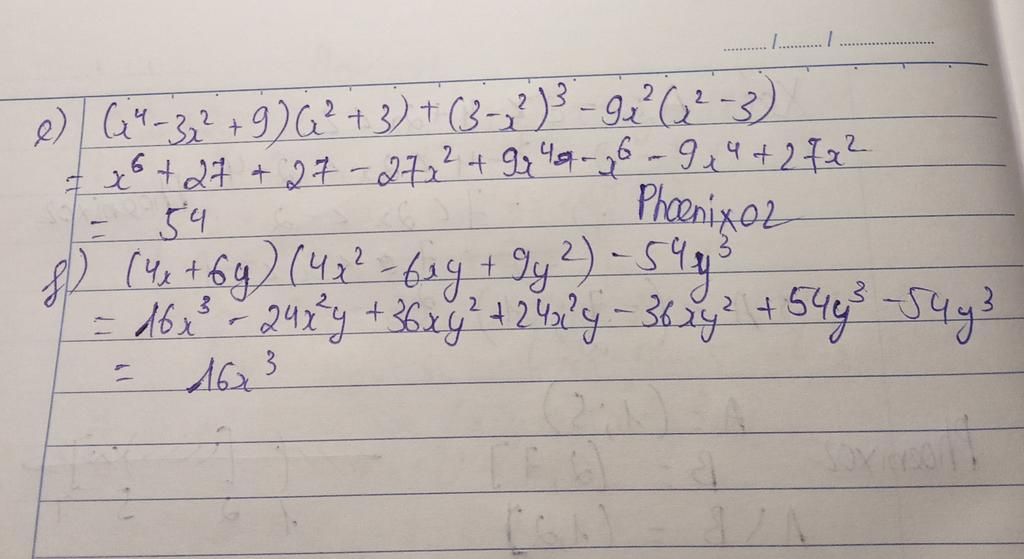 e) (x⁴ - 3x² + 9)(x² + 3) + (3 - x²)³ - 9x²(x² - 3)
= x⁶ + 27 + 27 - 27x² + 9x⁴ - x⁶ - 9x⁴ + 27x²
= 54 Phoenixo2
f) (4x + 6y)(4x² - 6xy + 9y²) - 54y³
= 16x³ - 24x²y + 36xy² + 24x²y - 36xy² + 54y³ - 54y³
= 16x³